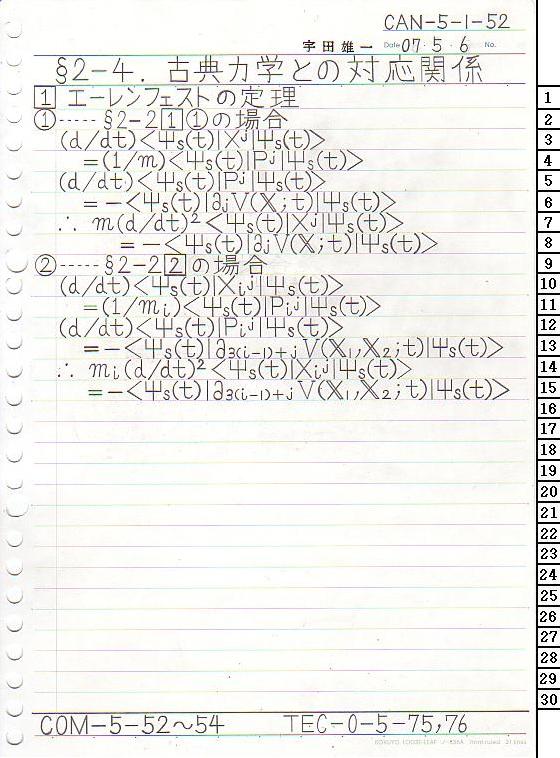 CAN-5-1-52
宇田雄一 Date 07・5・6 No.
§2-4. 古典力学との対応関係
1 エーレンフェストの定理
①----- §2-2 1 ①の場合
(d/dt)<Ψs(t)|Xʲ|Ψs(t)>
=(1/m)<Ψs(t)|Pʲ|Ψs(t)>
(d/dt)<Ψs(t)|Pʲ|Ψs(t)>
=-<Ψs(t)|∂ⱼV(𝕏;t)|Ψs(t)>
∴ m(d/dt)²<Ψs(t)|Xʲ|Ψs(t)>
=-<Ψs(t)|∂ⱼV(𝕏;t)|Ψs(t)>
②----- §2-2 2 の場合
(d/dt)<Ψs(t)|Xᵢʲ|Ψs(t)>
=(1/mᵢ)<Ψs(t)|Pᵢʲ|Ψs(t)>
(d/dt)<Ψs(t)|Pᵢʲ|Ψs(t)>
=-<Ψs(t)|∂₃₍ᵢ₋₁₎₊ⱼV(𝕏₁,𝕏₂;t)|Ψs(t)>
∴ mᵢ(d/dt)²<Ψs(t)|Xᵢʲ|Ψs(t)>
=-<Ψs(t)|∂₃₍ᵢ₋₁₎₊ⱼV(𝕏₁,𝕏₂;t)|Ψs(t)>
1
2
3
4
5
6
7
8
9
10
11
12
13
14
15
16
17
18
19
20
21
22
23
24
25
26
27
28
29
30
COM-5-52~54 TEC-0-5-75,76
KOKUYO LOOSE-LEAF